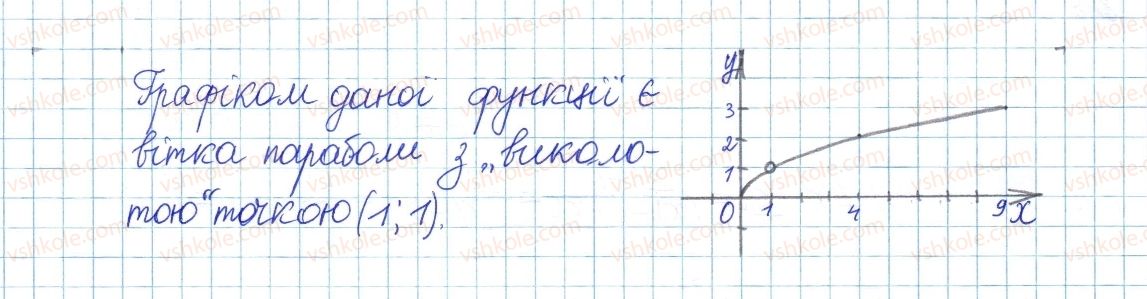 Графіком даної функції є
вітка параболи з „виколо-
тою“ точкою (1; 1).
y
3
2
1
0 1 4 9 x
vshkole.com